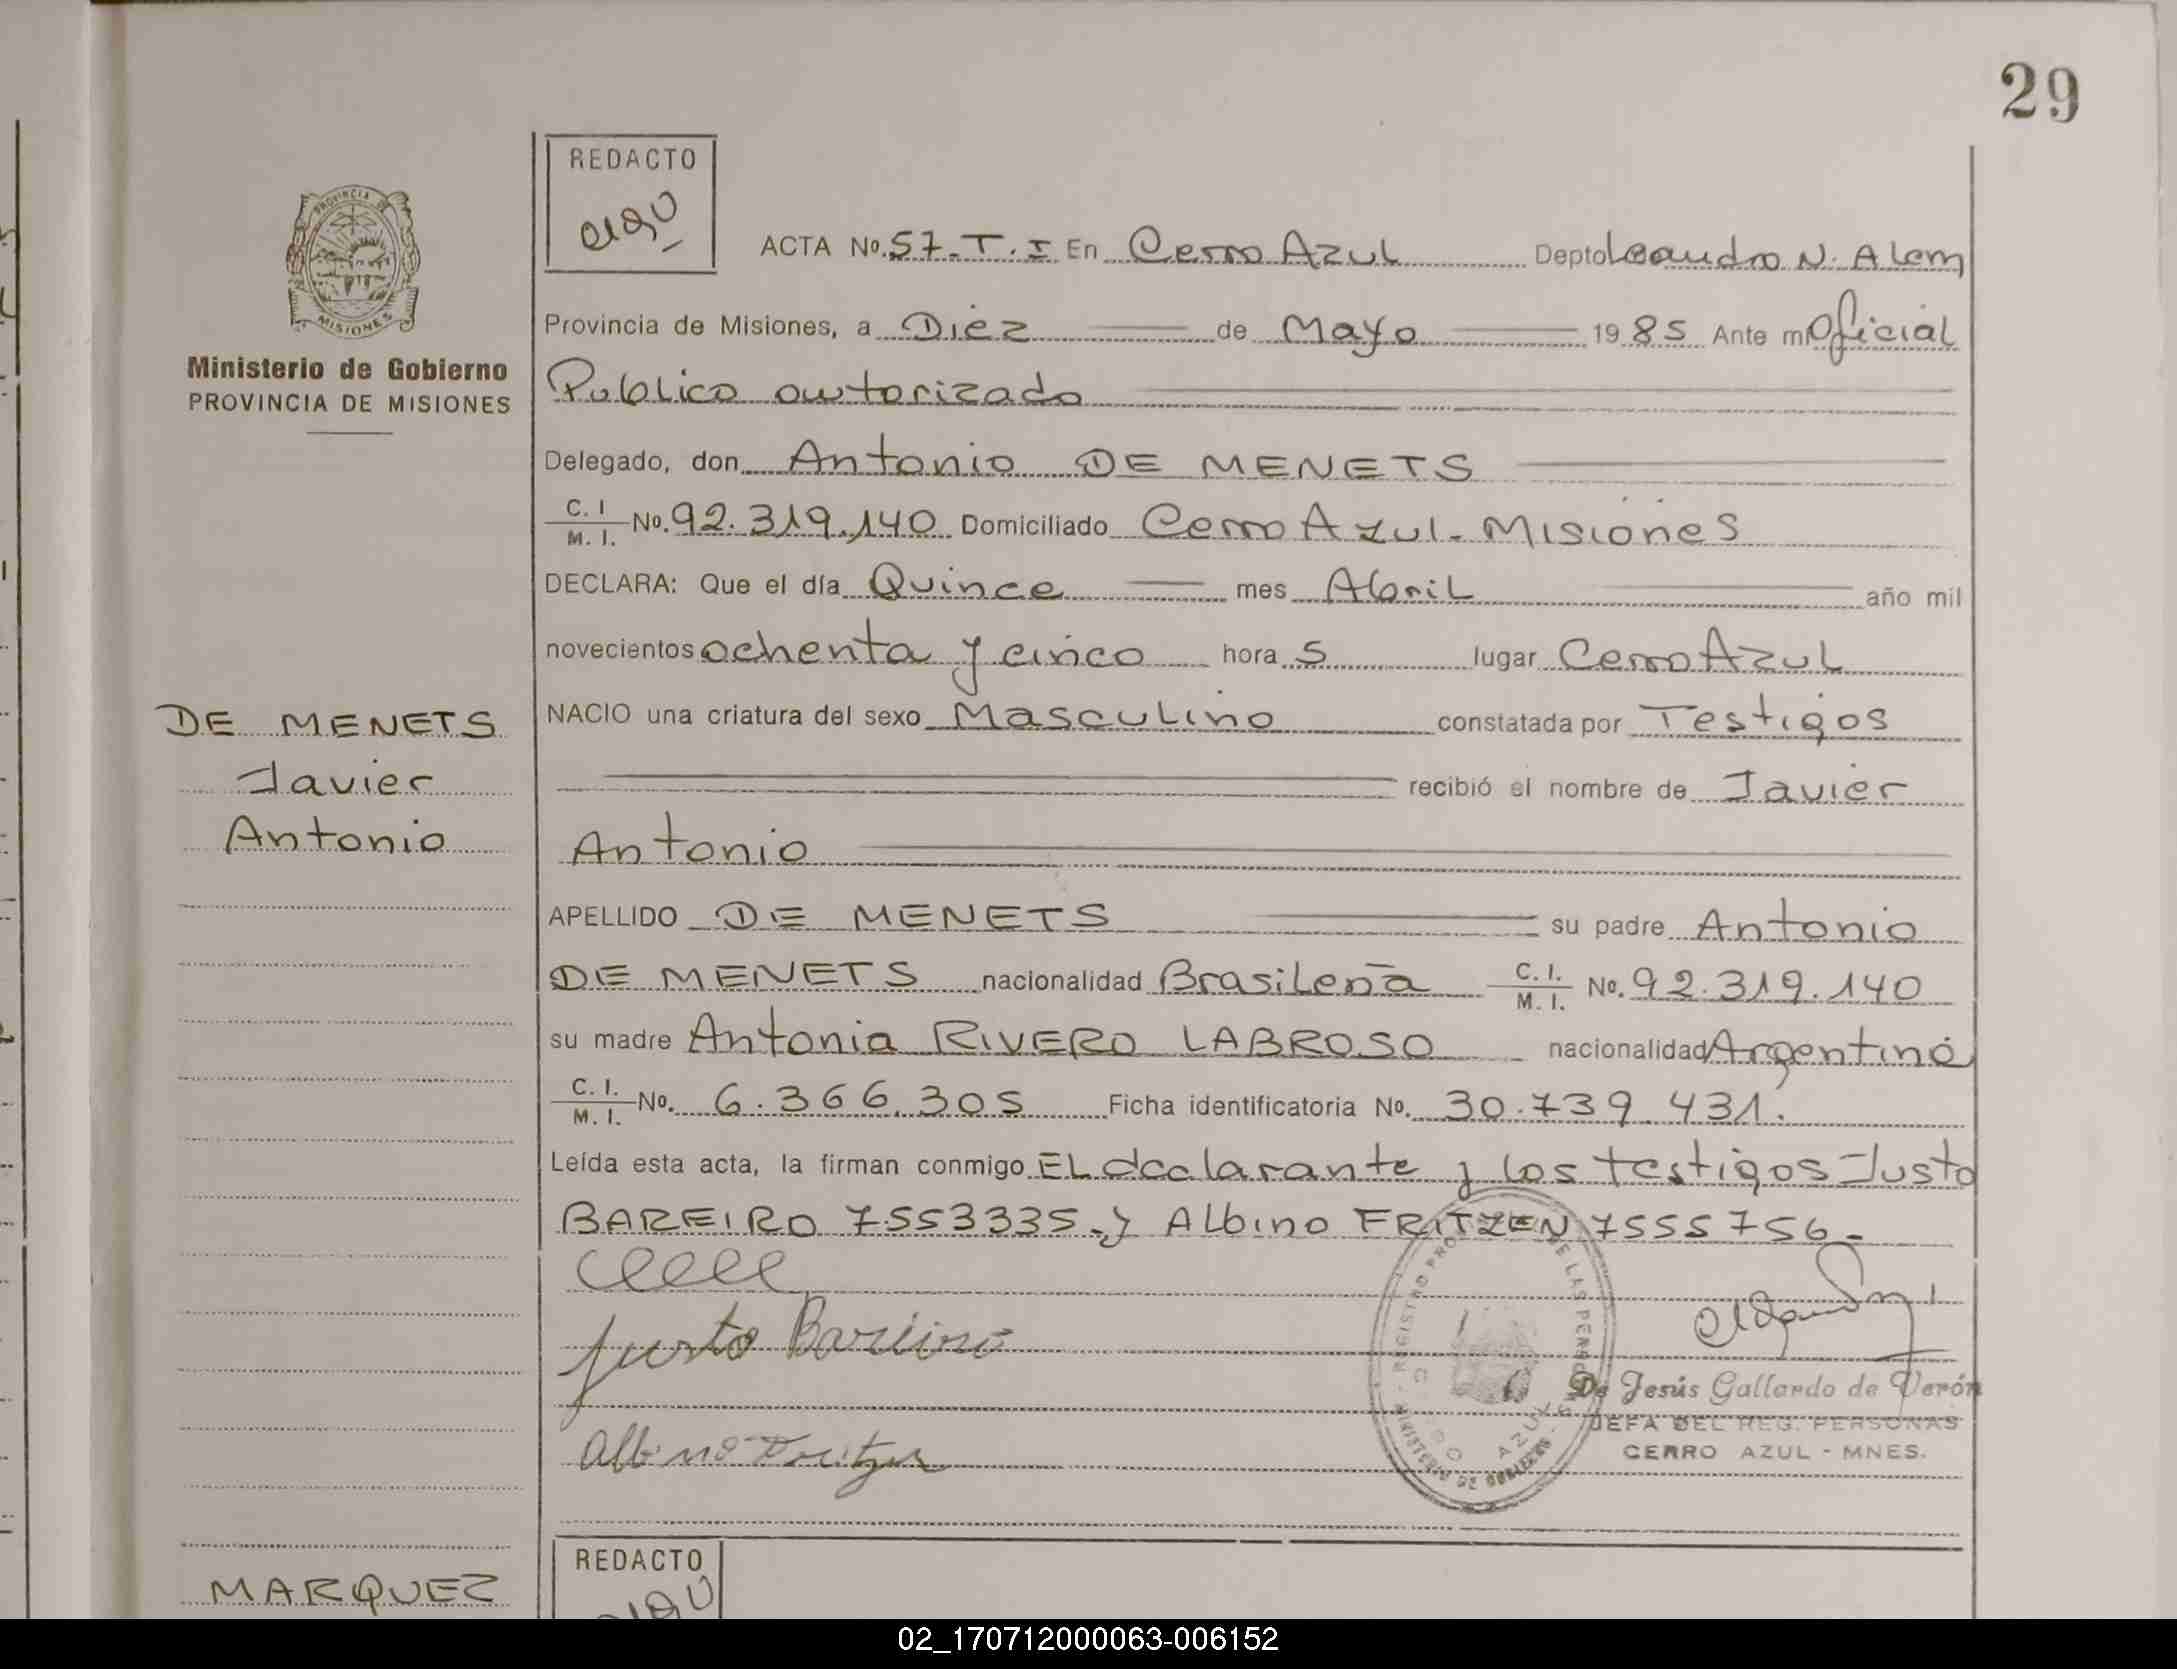 29
REDACTO
PROVINCIA DE
MISIONES
ACTA No. 57-T.I En Cerro Azul Depto Leandro N. Alem
Provincia de Misiones, a Diez de Mayo 1985 Ante mí Oficial
Ministerio de Gobierno
PROVINCIA DE MISIONES
Publico autorizado
Delegado, don Antonio DE MENETS
C. I. M. I. No. 92.319.140 Domiciliado Cerro Azul - Misiones
DECLARA: Que el día Quince mes Abril año mil
novecientos ochenta y cinco hora 5 lugar Cerro Azul
DE MENETS
Javier
Antonio
NACIO una criatura del sexo Masculino constatada por Testigos
recibió el nombre de Javier
Antonio
APELLIDO DE MENETS su padre Antonio
DE MENETS nacionalidad Brasileña C. I. M. I. No. 92.319.140
su madre Antonia RIVERO LABROSO nacionalidad Argentina
C. I. M. I. No. 6.366.305 Ficha identificatoria No. 30.739.431.
Leída esta acta, la firman conmigo EL declarante y los testigos Justo
BAREIRO 7553335.y Albino FRITZEN 7555756-
Justo Bareiro
Albino Fritzen
REGISTRO PRO DE LAS PERSONAS
MINISTERIO DE GOBIERNO
De Jesús Gallardo de Verón
JEFA DEL REG. PERSONAS
CERRO AZUL - MNES.
REDACTO
MARQUEZ
02_170712000063-006152